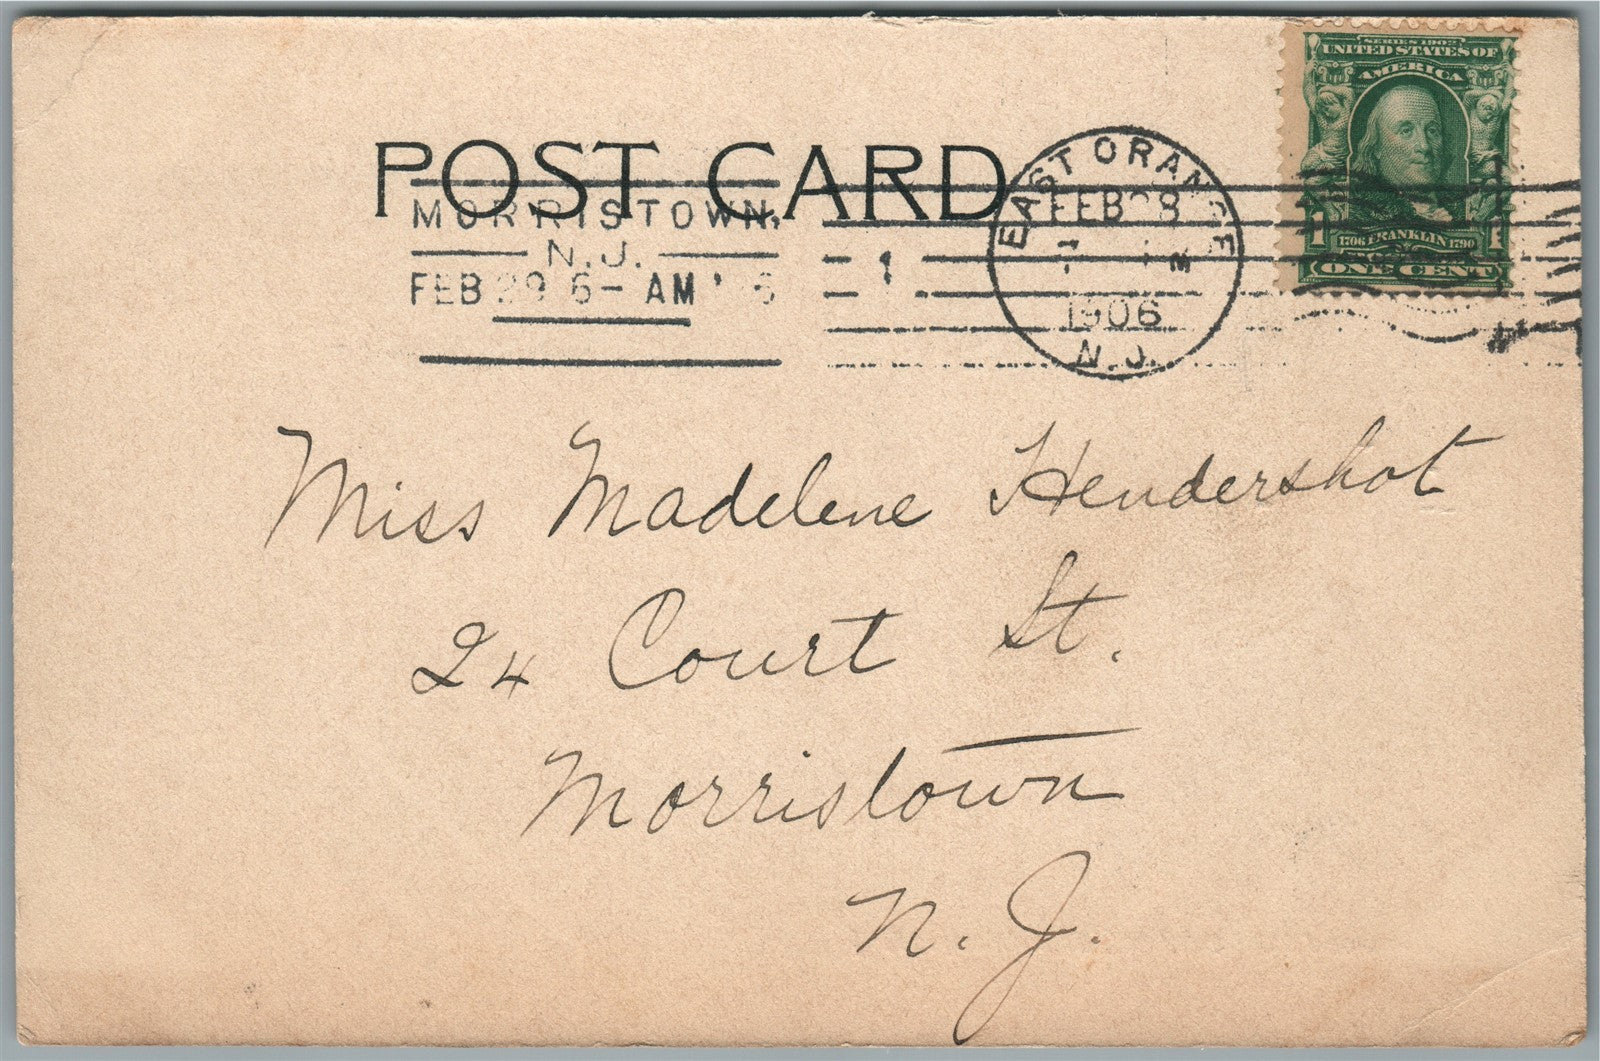 SERIES 1902
UNITED STATES OF
AMERICA
1 1706 FRANKLIN 1790 1
ONE CENT
POST CARD
MORRISTOWN,
N.J.
FEB 29 6- AM ' 6
1
EAST ORANGE
FEB 28
1906
N.J.
Miss Madelene Hendershot
24 Court St.
Morristown
N. J.